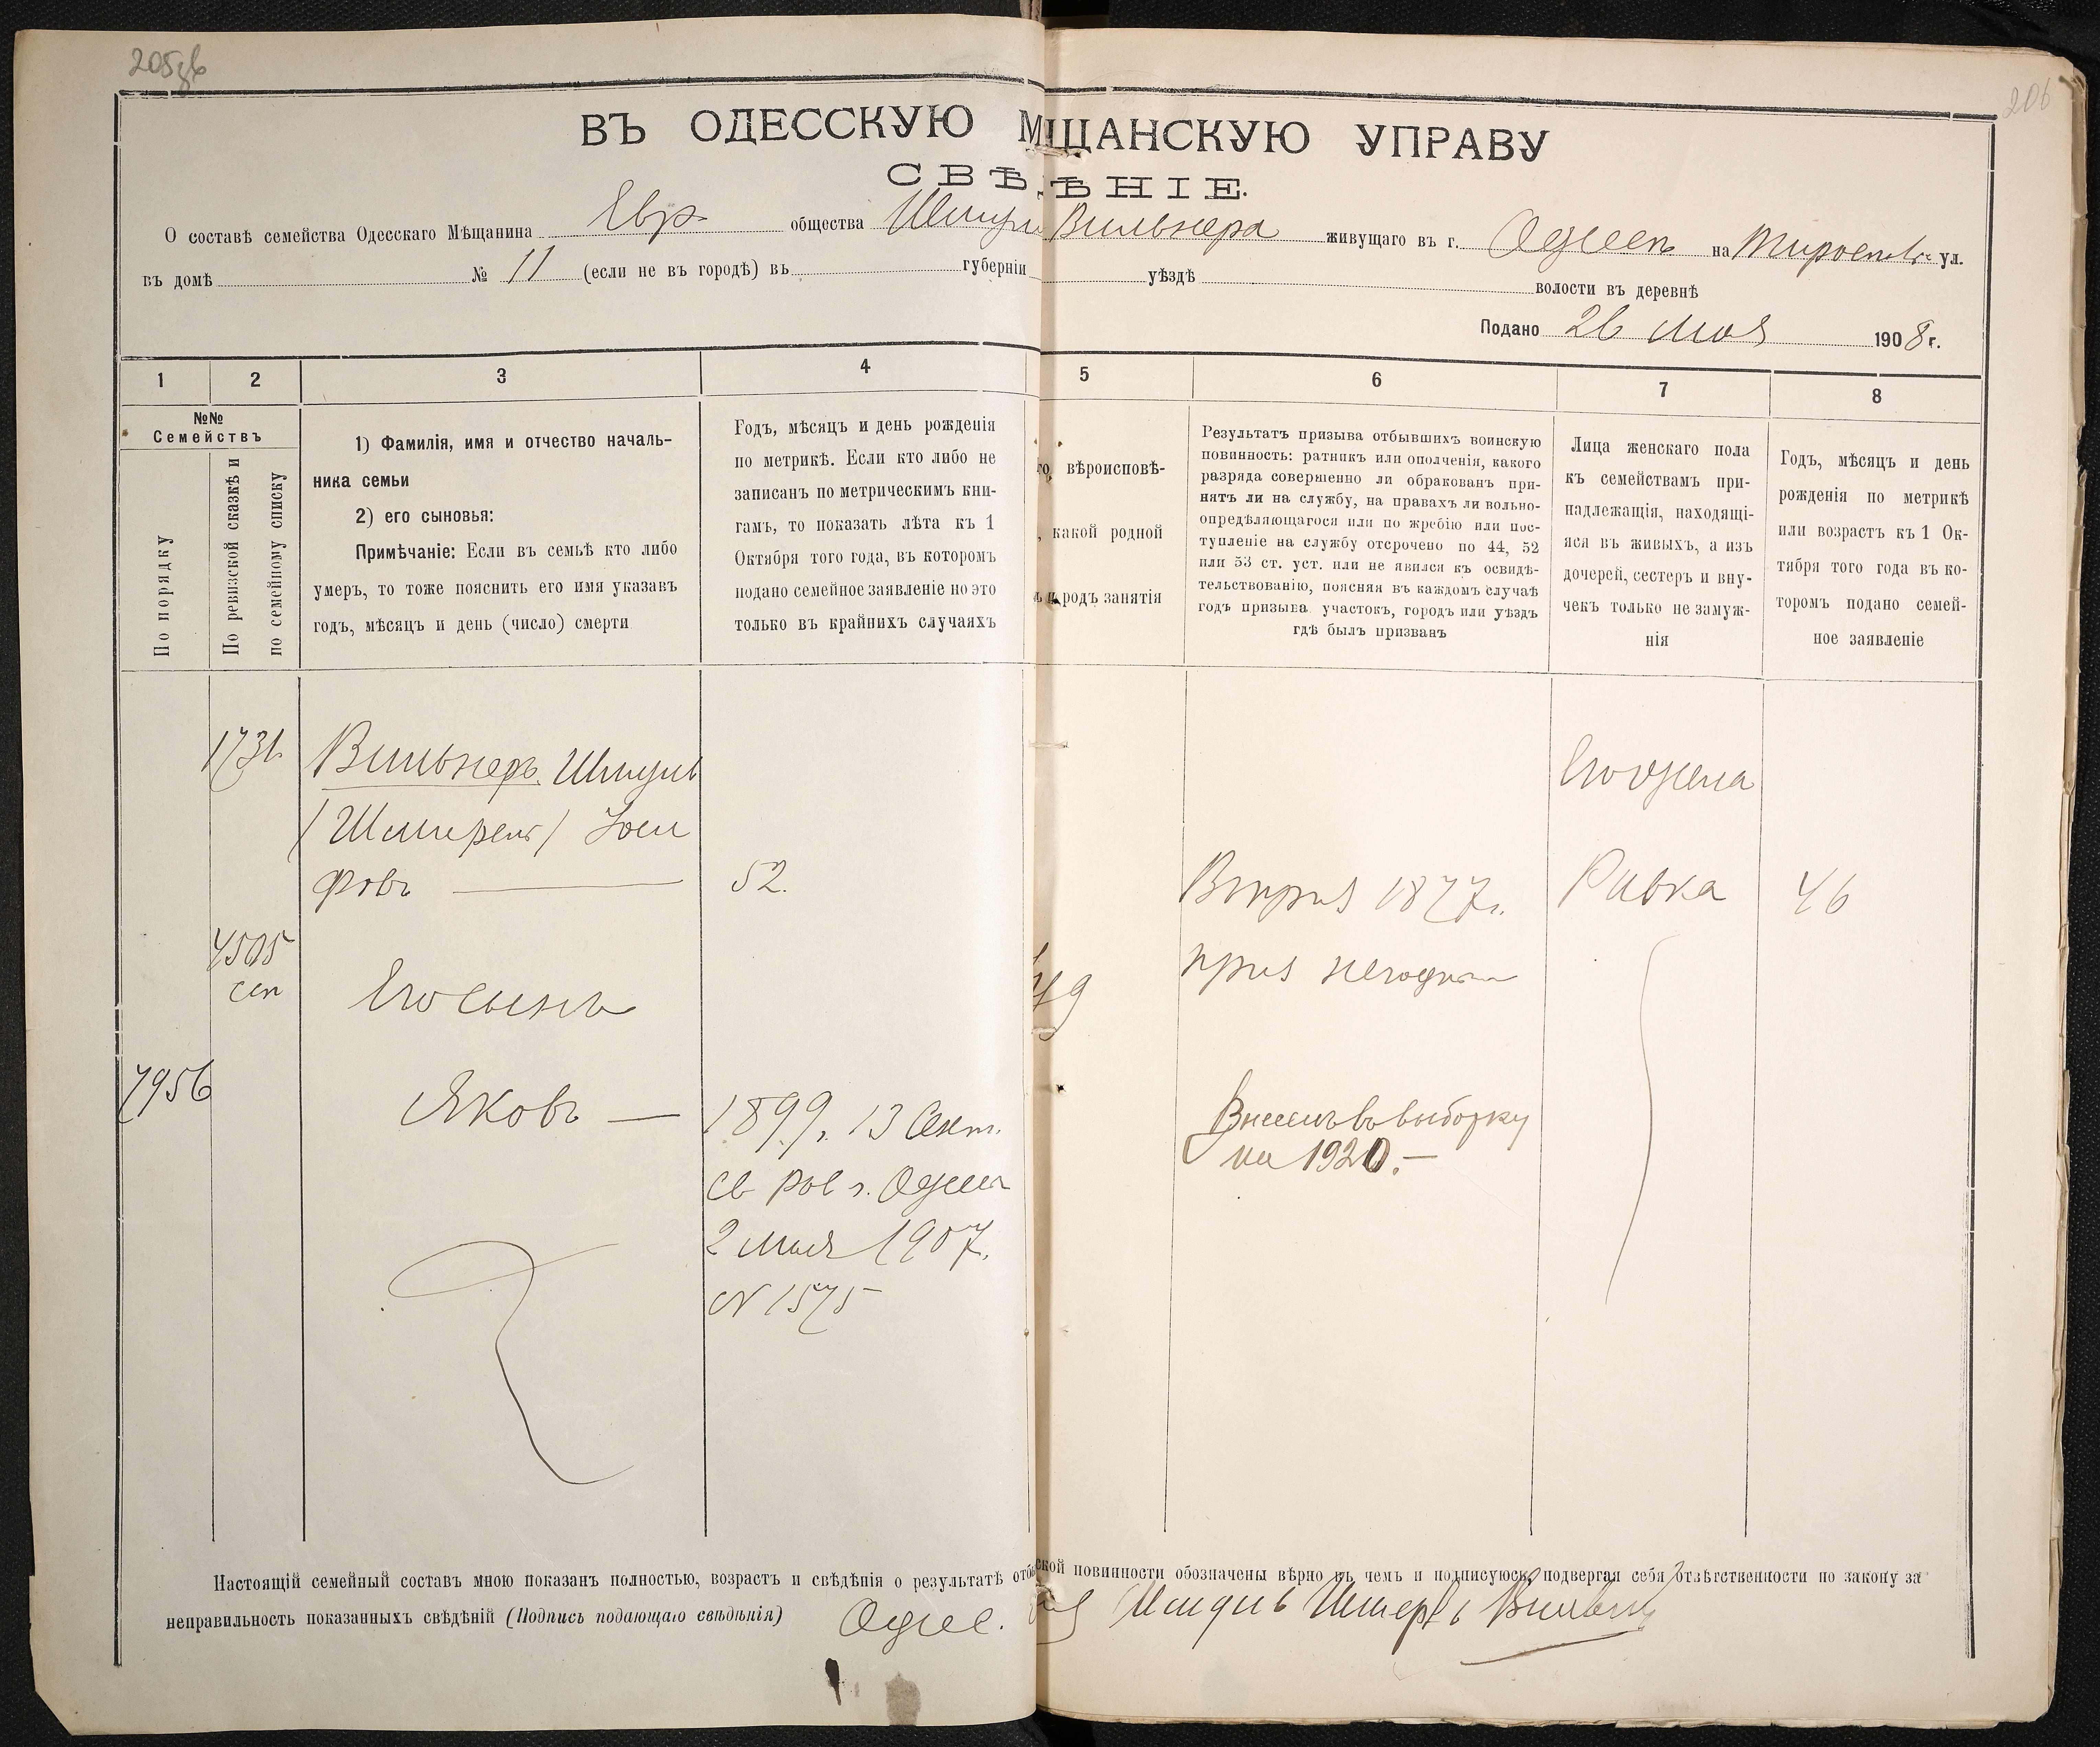 205зв
206
ВЪ ОДЕССКУЮ МЩАНСКУЮ УПРАВУ
СВѢДѢНІЕ.
О составѣ семейства Одесскаго Мѣщанина Евр. общества Шмуля Вильнера живущаго въ г. Одессѣ на ул.
въ домѣ № 11 (если не въ городѣ) въ губерніи уѣздѣ волости въ деревнѣ
Подано 26 мая 1908 г.
1 2 3 4 5 6 7 8
№№
Семействъ
По порядку
По ревизской сказкѣ и
по семейному списку
1) Фамилія, имя и отчество началь-
ника семьи
2) его сыновья:
Примѣчаніе: Если въ семьѣ кто либо
умеръ, то тоже пояснить его имя указавъ
годъ, мѣсяцъ и день (число) смерти
Годъ, мѣсяцъ и день рожденія
по метрикѣ. Если кто либо не
записанъ по метрическимъ кни-
гамъ, то показать лѣта къ 1
Октября того года, въ которомъ
подано семейное заявленіе но это
только въ крайнихъ случаяхъ
вѣроисповѣ-
какой родной
родъ занятія
Результатъ призыва отбывшихъ воинскую
повинность: ратникъ или ополченія, какого
разряда совершенно ли обракованъ при-
нятъ ли на службу, на правахъ ли вольно-
опредѣляющагося или по жребію или пос-
тупленіе на службу отсрочено по 44, 52
или 53 ст. уст. или не явился къ освидѣ-
тельствованію, поясняя въ каждомъ случаѣ
годъ призыва участокъ, городъ или уѣздъ
гдѣ былъ призванъ
Лица женскаго пола
къ семействамъ при-
надлежащія, находящі-
яся въ живыхъ, а изъ
дочерей, сестеръ и вну-
чекъ только не замуж-
нія
Годъ, мѣсяцъ и день
рожденія по метрикѣ
или возрастъ къ 1 Ок-
тября того года въ ко-
торомъ подано семей-
ное заявленіе
1731 Вильнеръ Шмуль
(Шмерель) Іоси
фовъ — 52.
Его жена
Въ приз 1877 г. Ривка 46
приз негоднымъ
4505
сем
Его сынъ
7956 Яковъ — 1899 г. 13 Сент.
св рав г. Одессы
2 мая 1907.
N 1575
Внесенъ въ выборку
на 1920. —
Настоящій семейный составъ мною показанъ полностью, возрастъ и свѣдѣнія о результатѣ отбы ской повинности обозначены вѣрно въ чемъ и подписуюсь, подвергая себя отвѣтственности по закону за
неправильность показанныхъ свѣдѣній (Подпись подающаго свѣдѣнія) Одес.